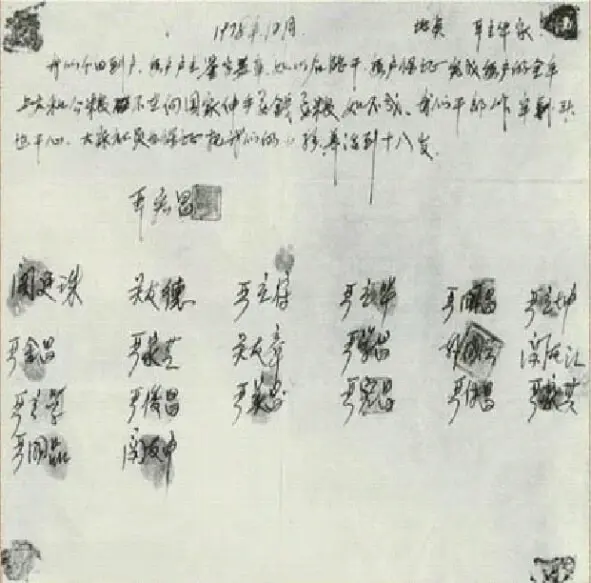 1978年12月 地点 严立华家
我们分田到户,每户户主签字盖章,如以后能干,每户保证完成每户的全年
上交和公粮不在向国家伸手要钱要粮,如不成,我们干部作牢剎头
也干心,大家社员也保证把我们的小孩养活到十八岁。
严宏昌
关廷珠 关友德 严立符 严立华 严国昌 严立坤
严金昌 严家芝 关友章 严学昌 韩国云 关友江
严立学 严俊昌 严美昌 严宏昌 严付昌 严家其
严国品 关友申